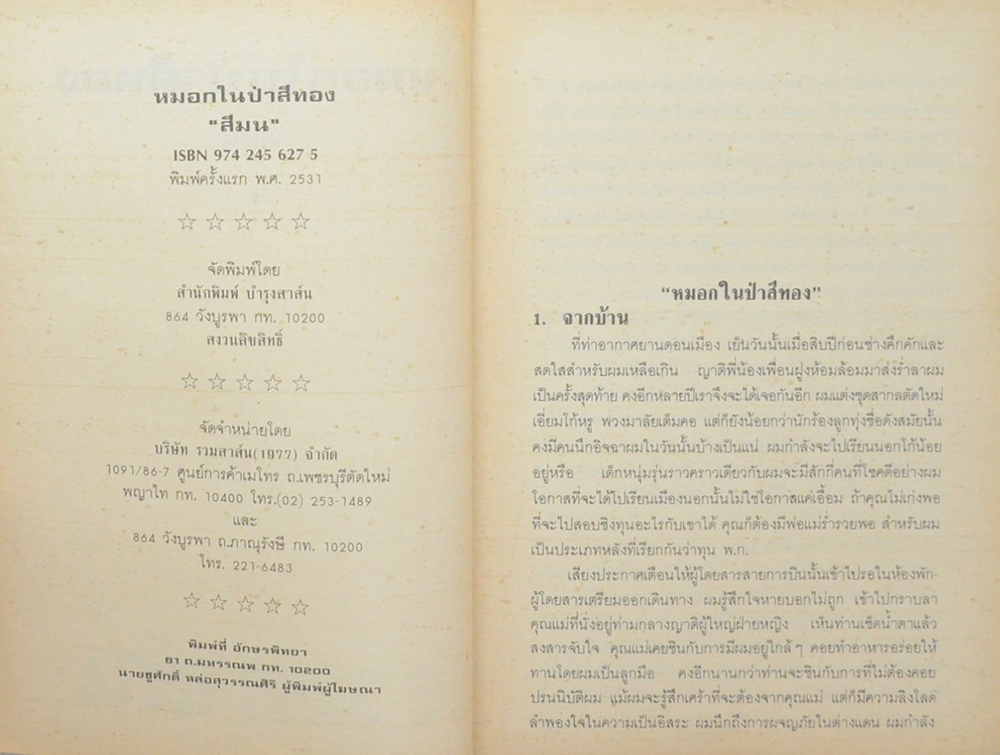 หมอกในป่าสีทอง
"สีมน"
ISBN 974 245 627 5
พิมพ์ครั้งแรก พ.ศ. 2531
☆ ☆ ☆ ☆ ☆
จัดพิมพ์โดย
สำนักพิมพ์ บำรุงสาส์น
864 วังบูรพา กท. 10200
สงวนลิขสิทธิ์
☆ ☆ ☆ ☆ ☆
จัดจำหน่ายโดย
บริษัท รวมสาส์น(1977) จำกัด
1091/86-7 ศูนย์การค้าเมโทร ถ.เพชรบุรีตัดใหม่
พญาไท กท. 10400 โทร.(02) 253-1489
และ
864 วังบูรพา ถ.ภาณุรังษี กท. 10200
โทร. 221-6483
☆ ☆ ☆ ☆ ☆
พิมพ์ที่ อักษรพิทยา
81 ถ.มหรรณพ กท. 10200
นายชูศักดิ์ หล่อสุวรรณศิริ ผู้พิมพ์ผู้โฆษณา
"หมอกในป่าสีทอง"
1. จากบ้าน
ที่ท่าอากาศยานดอนเมือง เย็นวันนั้นเมื่อสิบปีก่อนช่างคึกคักและ
สดใสสำหรับผมเหลือเกิน ญาติพี่น้องเพื่อนฝูงห้อมล้อมมาส่งร่ำลาผม
เป็นครั้งสุดท้าย คงอีกหลายปีเราจึงจะได้เจอกันอีก ผมแต่งชุดสากลตัดใหม่
เอี่ยมโก้หรู พวงมาลัยเต็มคอ แต่ก็ยังน้อยกว่านักร้องลูกทุ่งชื่อดังสมัยนั้น
คงมีคนนึกอิจฉาผมในวันนั้นบ้างเป็นแน่ ผมกำลังจะไปเรียนนอกโก้น้อย
อยู่หรือ เด็กหนุ่มรุ่นราวคราวเดียวกับผมจะมีสักกี่คนที่โชคดีอย่างผม
โอกาสที่จะได้ไปเรียนเมืองนอกนั้นไม่ใช่โอกาสแค่เอื้อม ถ้าคุณไม่เก่งพอ
ที่จะไปสอบชิงทุนอะไรกับเขาได้ คุณก็ต้องมีพ่อแม่ร่ำรวยพอ สำหรับผม
เป็นประเภทหลังที่เรียกกันว่าทุน พ.ก.
เสียงประกาศเตือนให้ผู้โดยสารสายการบินนั้นเข้าไปรอในห้องพัก
ผู้โดยสารเตรียมออกเดินทาง ผมรู้สึกใจหายบอกไม่ถูก เข้าไปกราบลา
คุณแม่ที่นั่งอยู่ท่ามกลางญาติผู้ใหญ่ฝ่ายหญิง เห็นท่านเช็ดน้ำตาแล้ว
สงสารจับใจ คุณแม่เคยชินกับการมีผมอยู่ใกล้ๆ คอยทำอาหารอร่อยให้
ทานโดยผมเป็นลูกมือ คงอีกนานกว่าท่านจะชินกับการที่ไม่ต้องคอย
ปรนนิบัติผม แม้ผมจะรู้สึกเศร้าที่จะต้องจากคุณแม่ แต่ก็มีความลิงโลด
ลำพองใจในความเป็นอิสระ ผมนึกถึงการผจญภัยในต่างแดน ผมกำลัง